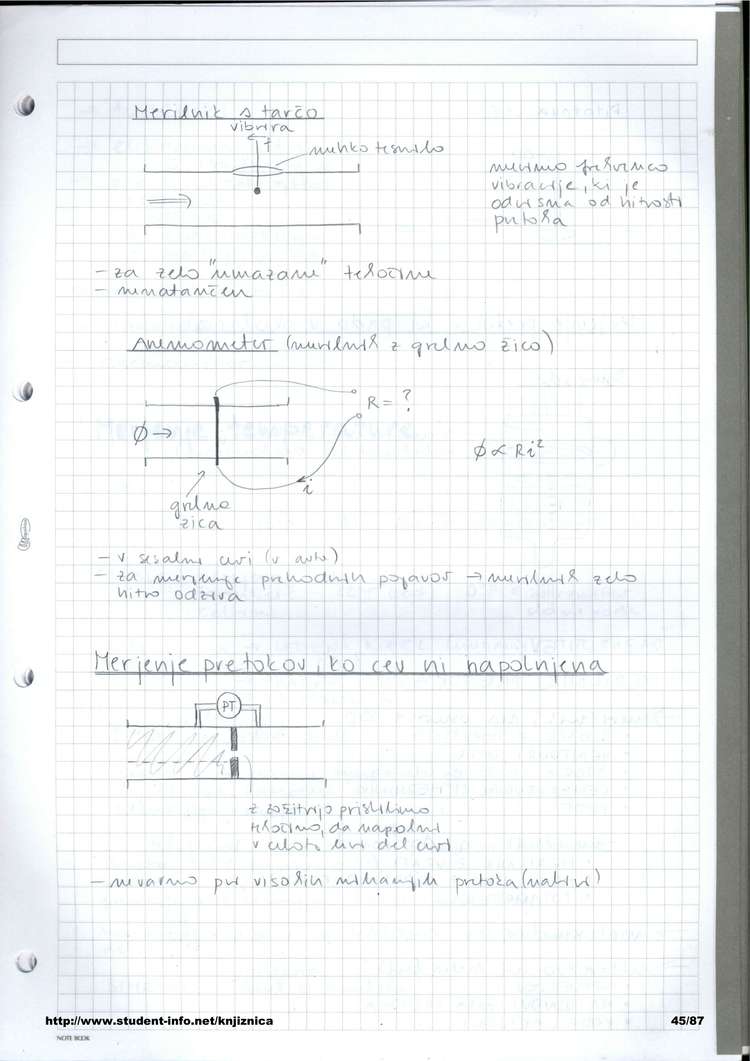 Merilnik s tarčo
vibrira
f
mehko tesnilo
merimo frekvenco
vibracije, ki je
odvisna od hitrosti
pretoka
- za zelo "umazane" tekočine
- nenatančen
Anemometer (merilnik z grelno žico)
R = ?
Φ →
Φ ∝ Ri²
i
grelna
žica
- v sesalni cevi (v avtu)
- za merjenje prehodnih pojavov → merilnik zelo
hitro odziva
Merjenje pretokov, ko cev ni napolnjena
PT
z zožitvijo prisilimo
tekočino, da napolni
v celoti levi del cevi
- nevarno pri visokih nihanjih pretoka (nalivi)
http://www.student-info.net/knjiznica
45/87
NOTE BOOK